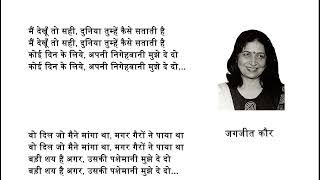 मैं देखूँ तो सही, दुनिया तुम्हें कैसे सताती है
मैं देखूँ तो सही, दुनिया तुम्हें कैसे सताती है
कोई दिन के लिये, अपनी निगेहबानी मुझे दे दो
कोई दिन के लिये, अपनी निगेहबानी मुझे दे दो...
वो दिल जो मैने मांगा था, मगर गैरों ने पाया था
वो दिल जो मैने मांगा था, मगर गैरों ने पाया था
बड़ी शय है अगर, उसकी पशेमानी मुझे दे दो
बड़ी शय है अगर, उसकी पशेमानी मुझे दे दो...
जगजीत कौर